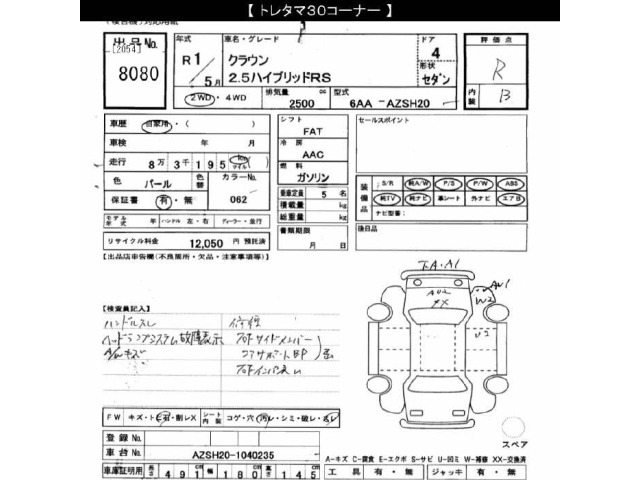 【 トレタマ30コーナー 】
出品No.
[2054]
8080
年式
R1
5月
車名・グレード
クラウン
2.5ハイブリッドRS
ドア
4
セダン
評価点
R
内装
B
2WD・4WD
排気量
2500
cc
型式
6AA -AZSH20
車歴 自家用・( )
車検 年 月
走行 8万3千195 km マイル
色 パール 色替 カラーNo. 062
保証書 有・無
モデル年式 年 ハンドル 左・右 ディーラー・並行
リサイクル料金 12,050 円 預託済
シフト
FAT
冷房
AAC
燃料
ガソリン
乗車定員 5 名
積載量 kg
総重量 kg
書類期限
月 日
セールスポイント
装備品
S/R 純A/W P/S P/W ABS
純TV 純ナビ 革シート 外ナビ エアB
ナビ型番:
後日品
【出品店申告欄(不良箇所・欠品・注意事項等)】
【検査員記入】
ハンドルスレ
ヘッドランプシステム故障表示
A/Wキズ
修歴
フロントインパネム
A1
AU2
XX
W2
U2
FW キズ・ト・E石・削レX
シート内装 コゲ・穴・汚レ・シミ・破レ・スレ
登録No.
車台No. AZSH20-1040235
車庫証明用 長さ 491 幅 180 cm 高さ 145
スペア
A-キズ C-腐食 E-エクボ S-サビ U-凹ミ W-補修 XX-交換済
工具 有・無 ジャッキ 有・無